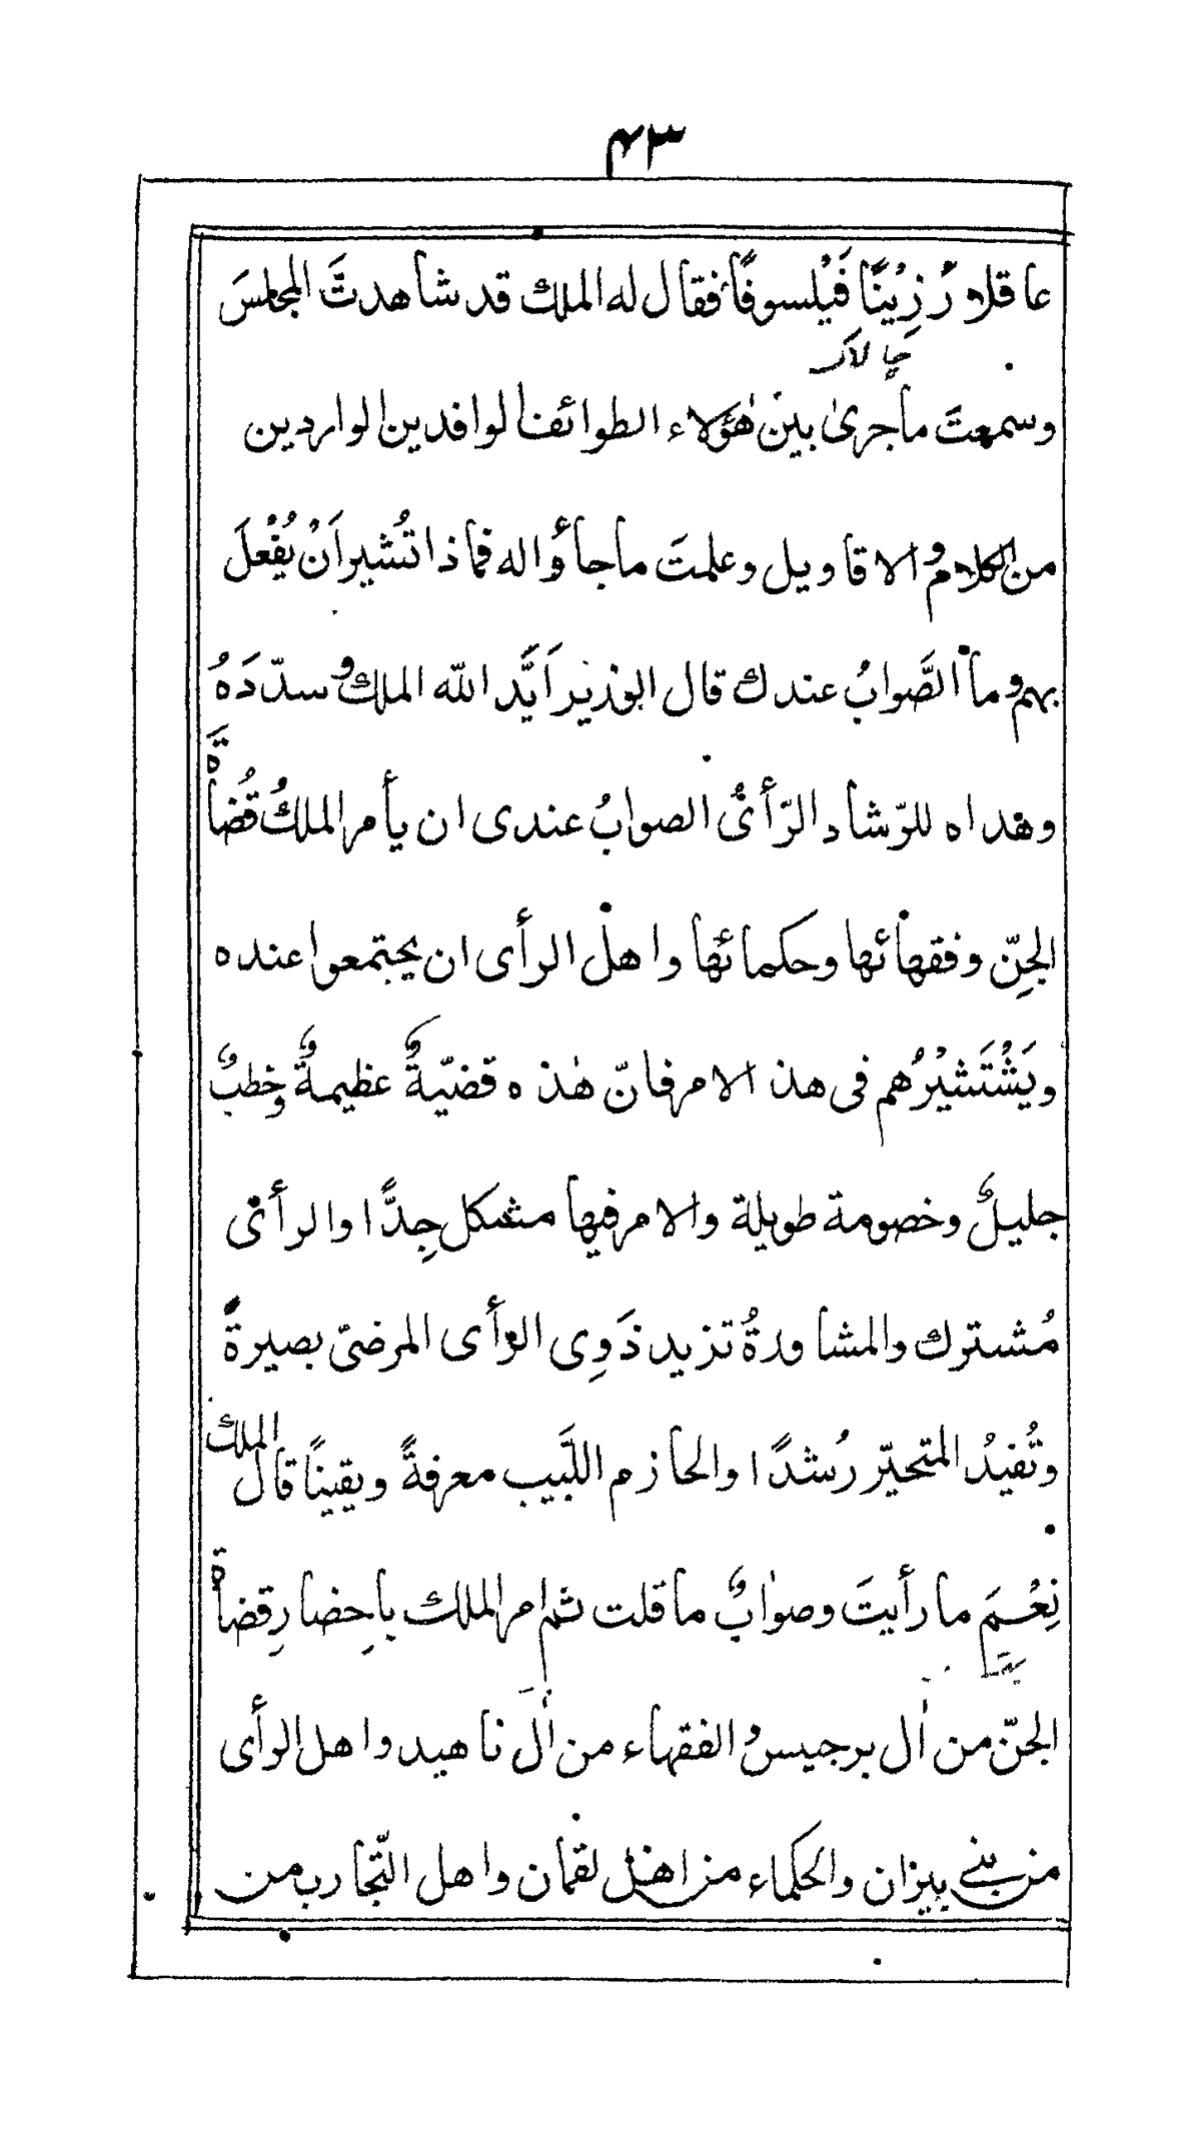 ۴۳
عاقلا رَزِيْنًا فَيْلسوفًا فقال له الملك قد شاهدتَّ المجلسَ
وسمعتَ ماجرىٰ بين هٰؤلاء الطوائف الوافدين الواردين
من الكلام والاقاويل وعلمتَ ماجاؤا له فماذا تُشير اَنْ يُفْعلَ
بهم وما الصَّوابُ عندك قال الوزير اَيَّد الله الملك وسدّدَهُ
وهداه للرّشاد الرّأىُ الصوابُ عندى ان يأمر الملكُ قُضاةَ
الجِنّ وفقهائها وحكمائها واهل الرأى ان يجتمعوا عنده
ويَسْتَشيْرُهم فى هذا الامر فانّ هٰذه قضيّةٌ عظيمةٌ وخطبٌ
جليلٌ وخصومة طويلة والامر فيها مشكل جِدًّا والرأى
مُشترك والمشاورةُ تزيد ذَوِى الرأى المرضىّ بصيرةً
وتُفيدُ المتحيّر رُشدًا والحازم اللَّبيب معرفةً ويقينًا قال الملك
نِعْمَ ما رأيتَ وصوابٌ ما قلت ثم امر الملك باحضارِ قضاة
الجنّ من اٰل برجيس والفقهاء من اٰل ناهيد واهل الرأى
من بنے بيزان والحكماء من اهل لقمان واهل التّجارب من